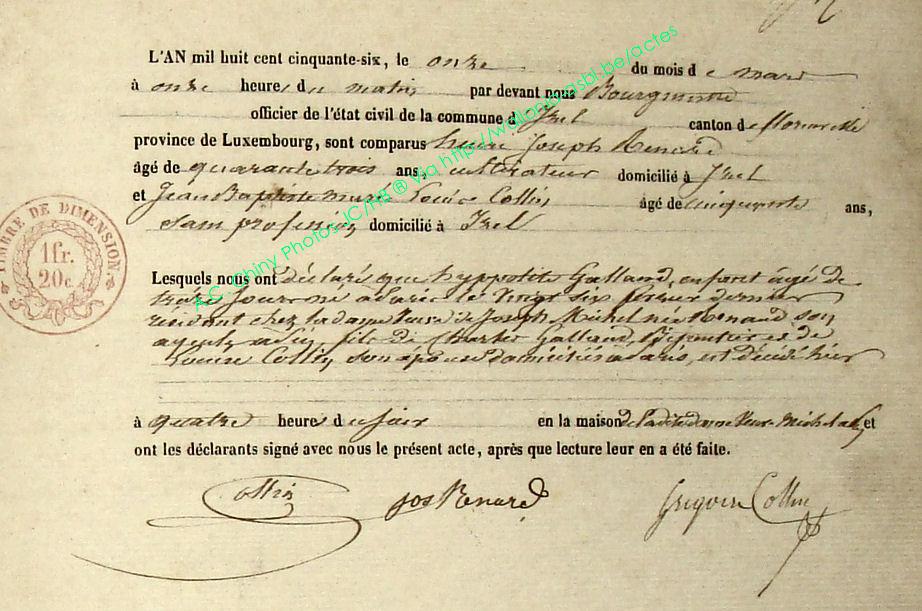 L'AN mil huit cent cinquante-six, le onze du mois de mars
à onze heures du matin par devant nous Bourgmestre
officier de l'état civil de la commune d'Izel canton de florenville
province de Luxembourg, sont comparus henri Joseph Renard
âgé de quarante trois ans, cultivateur domicilié à Izel
et Jean Baptiste Collin, âgé de cinquante ans,
sans profession, domicilié à Izel
Lesquels nous ont déclaré que hyppolite Galland, enfant âgé de
treize jours né à le vingt six février dernier
résidant chez la dame veuve de Joseph Michel née Renard son
fils de Charles Galland, et de
Louise Collin, son épouse domiciliés à, est décédé hier
à quatre heures du soir en la maison de la dite dame veuve Michel et
ont les déclarants signé avec nous le présent acte, après que lecture leur en a été faite.
Collin Jos Renard Grégoire Collin
TIMBRE DE DIMENSION.
1fr.
20c.
A.C. Chiny Photos JC/HB ® via http://wallonia-asbl.be/actes